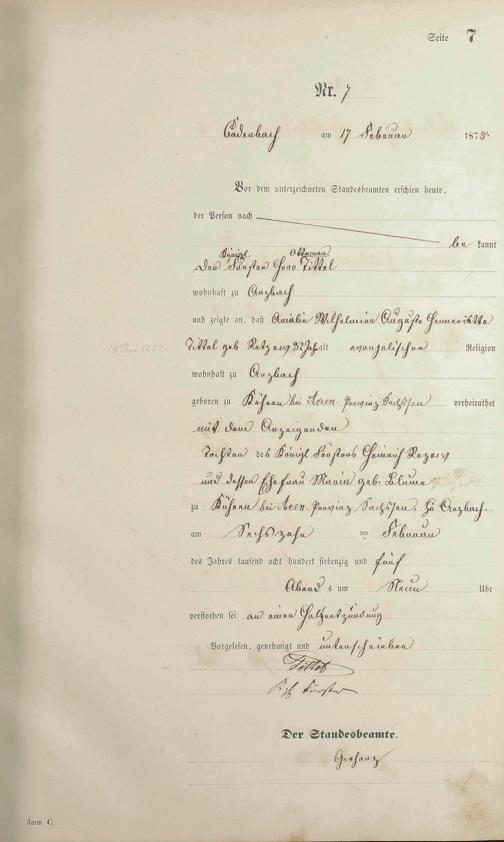 Seite 7
Nr. 7
Cadenbach am 17 Februar 1875
Vor dem unterzeichneten Standesbeamten erschien heute,
der Person nach
be kannt
Königl
der Förster Herr Tittel
wohnhaft zu Arzbach
und zeigte an, daß Amalie Wilhelmine Auguste Henriette
Tittel geb 32 Jahr alt evangelischer Religion
wohnhaft zu Arzbach
geboren zu Kühren bei Acen. Provinz Sachsen verheirathet
mit dem Anzeigenden
Tochter des Königl Försters Heinrich
und dessen Ehefrau Maria geb. Blume
zu Kühren bei Acen. Provinz Sachsen, zu Arzbach.
am Sechszehn ten Februar
des Jahres tausend acht hundert siebenzig und fünf
Abend s um Neun Uhr
verstorben sei an einer Halsentzündung
Vorgelesen, genehmigt und unterschrieben
Tittel
Kgl. Förster
Der Standesbeamte.
Gerharz
Form. C.